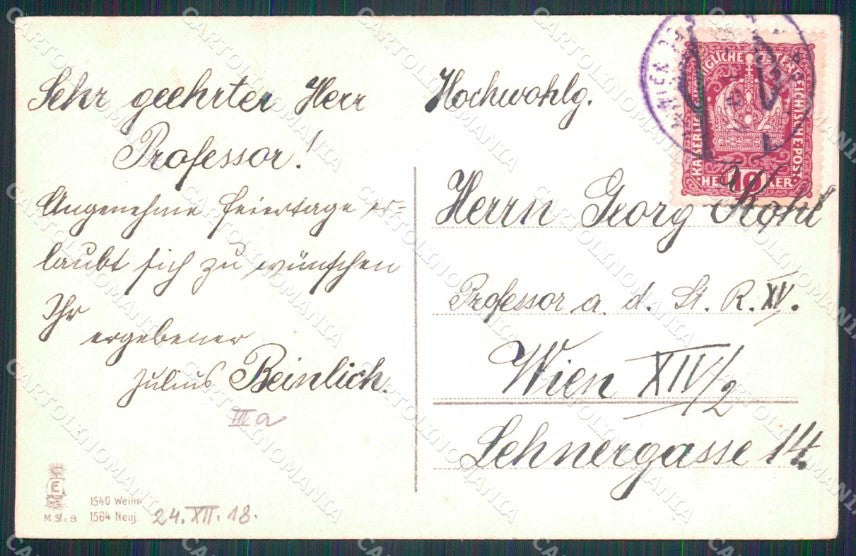 Sehr geehrter Herr
Professor!
Angenehme Feiertage er-
laubt sich zu wünschen
Ihr
ergebener
Julius Beinlich.
IIIa
1540 Weihn.
M.S.i.B 1564 Neuj.
24.XII.18.
WIEN
KAISERLICHE KÖNIGLICHE ÖSTERREICHISCHE POST
10
HELLER
Hochwohlg.
Herrn Georg Kohl
Professor a. d. St. R. XV.
Wien XIV/2
Lehnergasse 14.
CARTOLINOMANIA